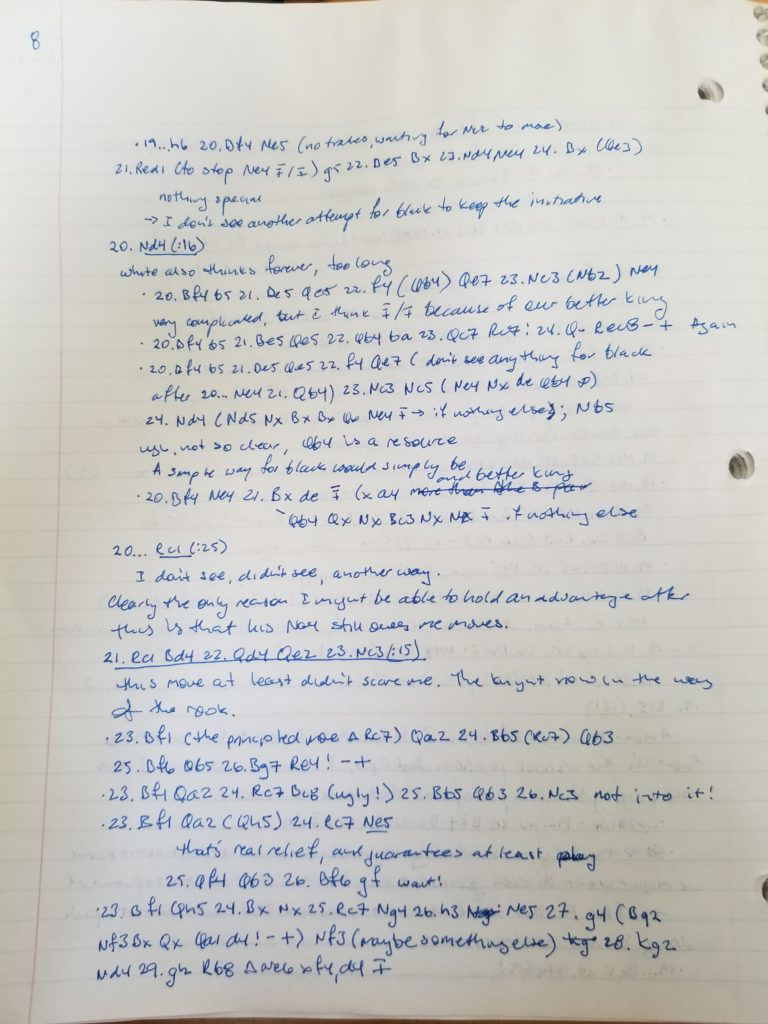 8
· 19...h6 20. Bf4 Ne5 (no trades, waiting for Ne2 to move)
21. Red1 (to stop Ne4 ∓/∓) g5 22. Be5 Bx 23. Nd4 Ne4 24. Bx (Qe3)
nothing special
→ I don't see another attempt for black to keep the initiative
20. Nd4 (:16)
White also thinks forever, too long
· 20. Bf4 b5 21. Be5 Qe5 22. f4 (Qb4) Qe7 23. Nc3 (Nb2) Ne4
very complicated, but I think ∓/∓ because of our better king
· 20. Bf4 b5 21. Be5 Qe5 22. Qb4 ba 23. Qc7 Rc7! 24. Q~ Rec8 -+ Again
· 20. Bf4 b5 21. Be5 Qe5 22. f4 Qe7 (don't see anything for black
after 20... Ne4 21. Qb4) 23. Nc3 Nc5 (Ne4 Nx de Qb4 ∞)
24. Nd4 (Nd5 Nx Bx Bx Qx Ne4 ∓ → if nothing else); Nb5
ugh, not so clear, Qb4 is a resource
A simple way for black would simply be
and better king
· 20. Bf4 Ne4 21. Bx de ∓ (xa4 more than the B-pair
Qb4 Qx Nx Bc3 Nx Nx ∓ if nothing else
20... Rc1 (:25)
I don't see, didn't see, another way.
Clearly the only reason I might be able to hold an advantage after
this is that his Na4 still owes me moves.
21. Rc1 Bd4 22. Qd4 Qe2 23. Nc3 (:15)
this move at least didn't scare me. The knight now in the way
of the rook.
· 23. Bf1 (the principled move Δ Rc7) Qa2 24. Bb5 (Rc7) Qb3
25. Bf6 Qb5 26. Bg7 Re4! -+
· 23. Bf1 Qa2 24. Rc7 Bc8 (ugly!) 25. Bb5 Qb3 26. Nc3 not into it!
· 23. Bf1 Qa2 (Qh5) 24. Rc7 Ne5
that's real relief, and guarantees at least play
25. Qf4 Qb3 26. Bf6 gf wait!
· 23. Bf1 Qh5 24. Bx Nx 25. Rc7 Ng4 26. h3 Ne5 27. g4 (Bg2
Nf3 Bx Qx Qa1 d4! -+) Nf3 (maybe something else) kg 28. Kg2
Nd4 29. gh Rb8 Δ xf4, d4 ∓